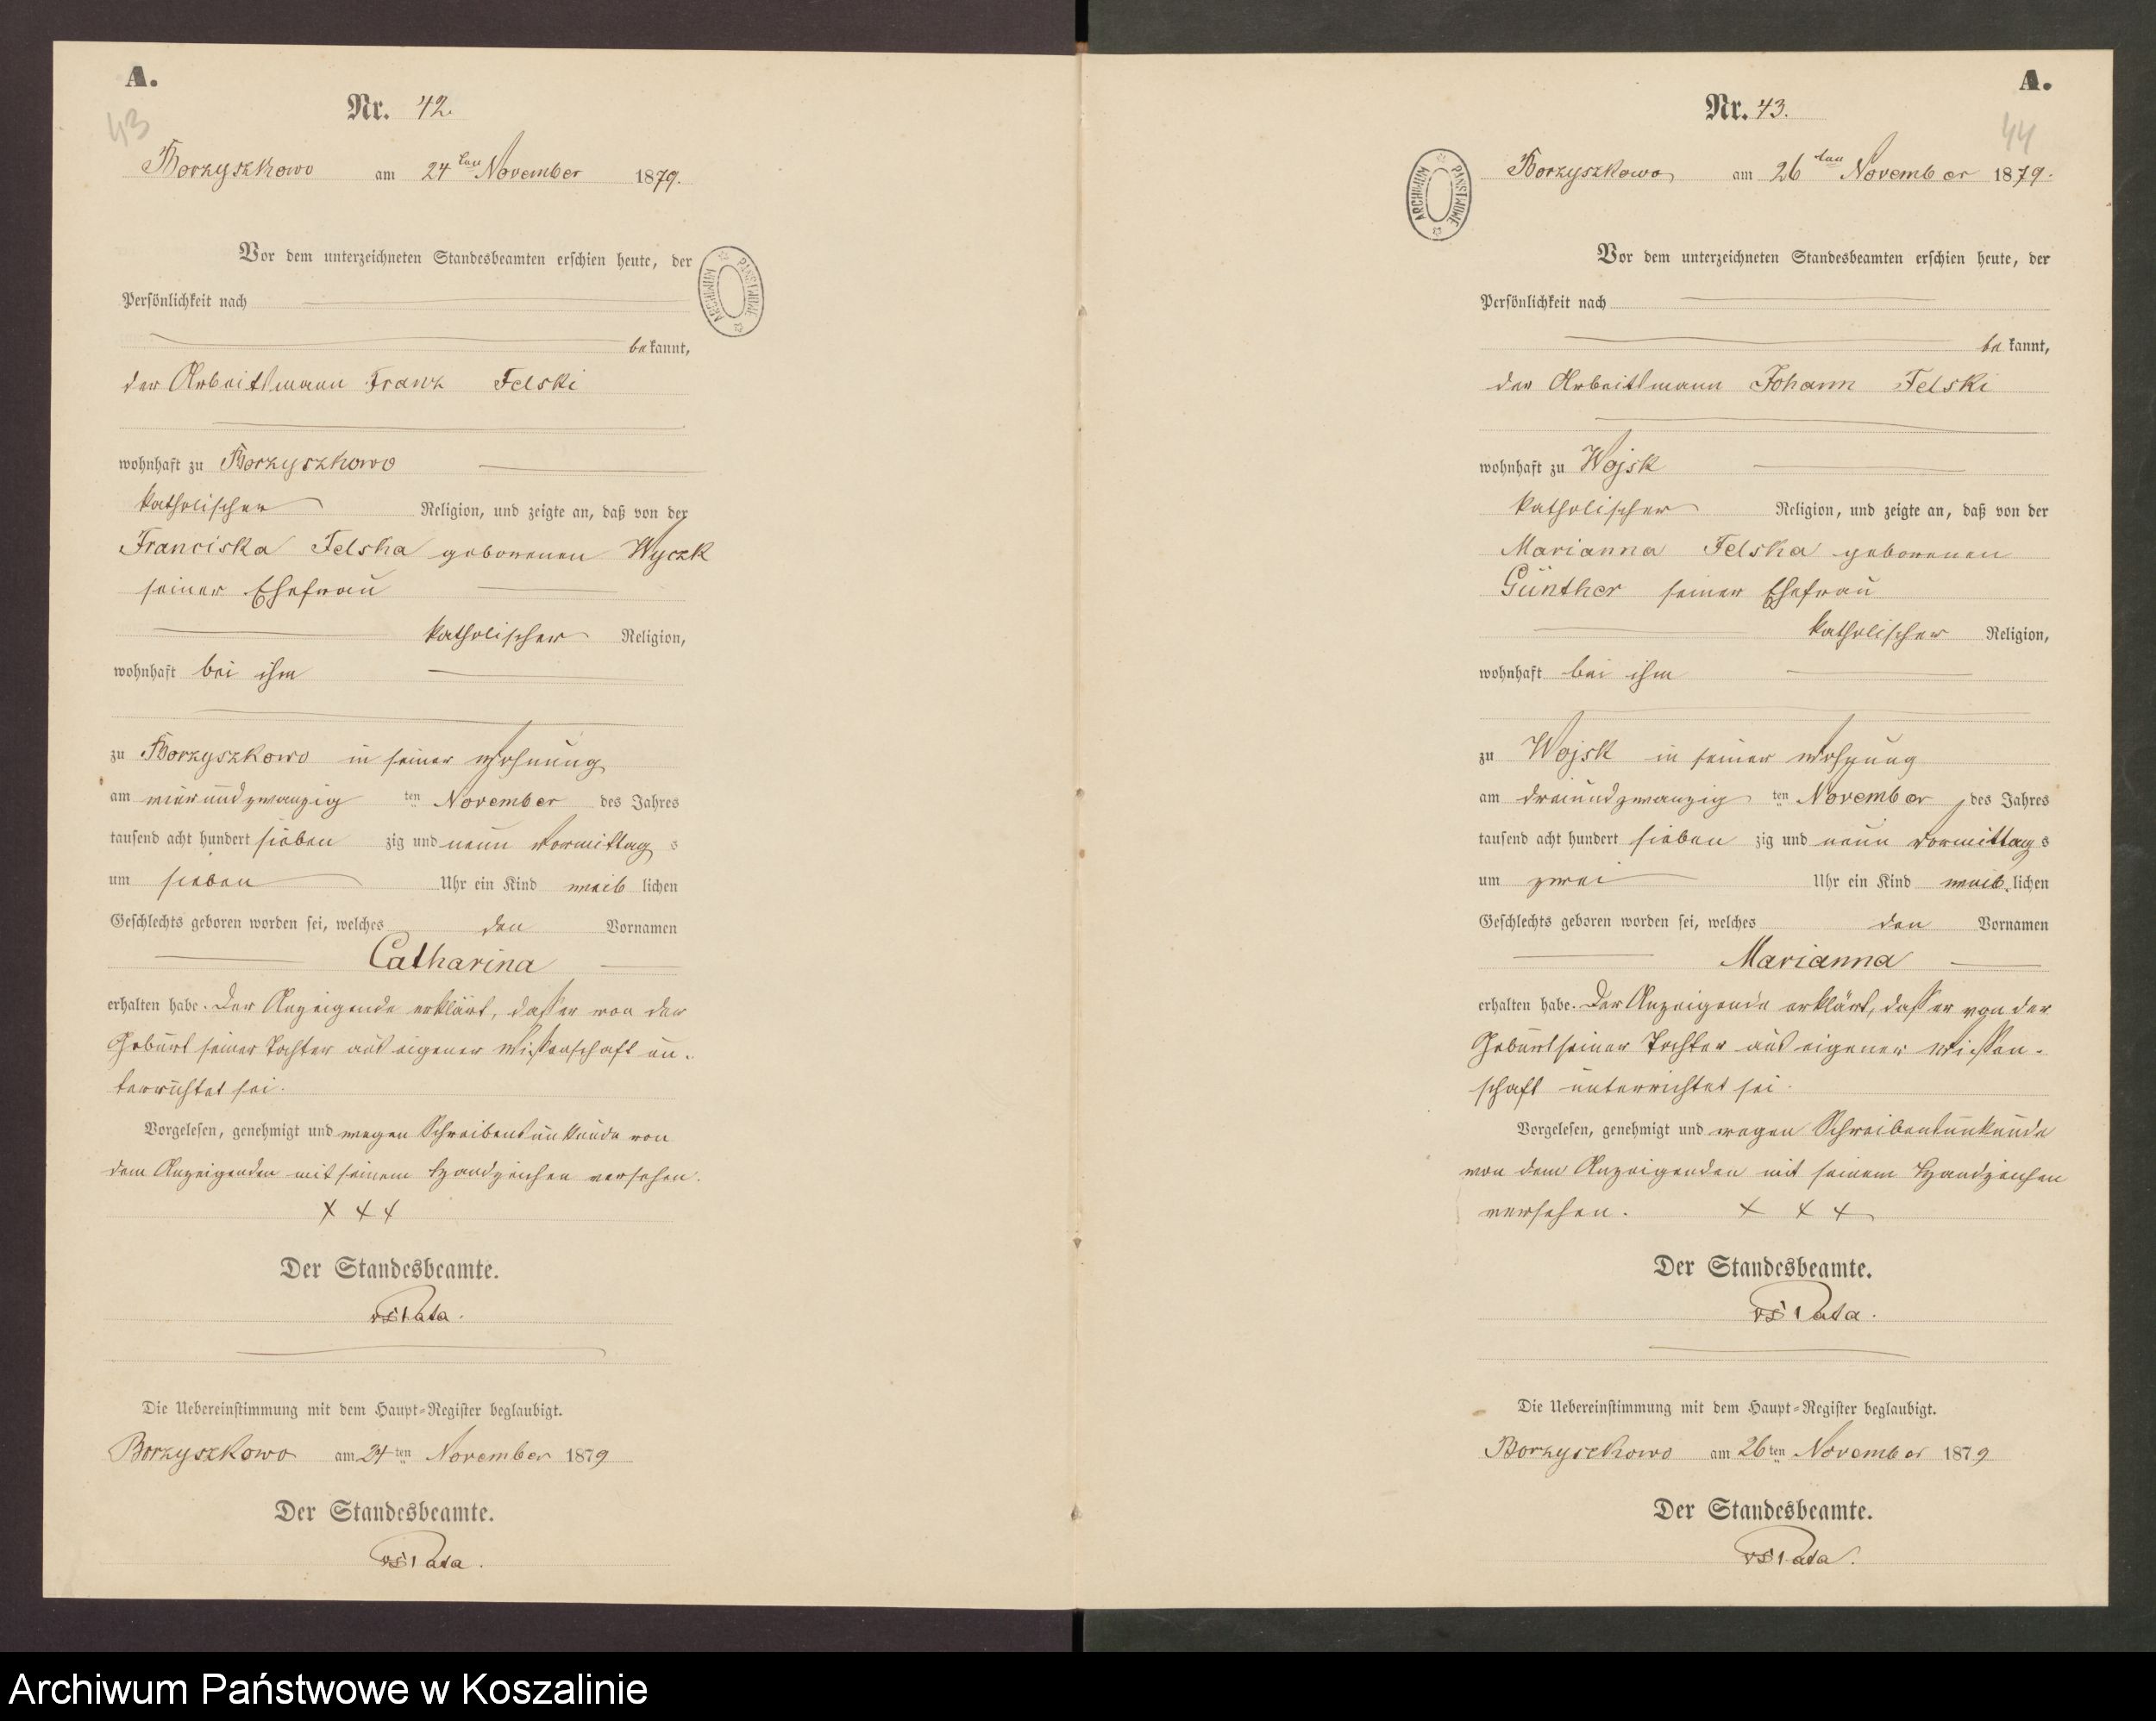 A.
43
Nr. 42.
Borzyszkowo am 24ten November 1879.
Vor dem unterzeichneten Standesbeamten erschien heute, der
Persönlichkeit nach
bekannt,
der Arbeitsmann Franz Felski
wohnhaft zu Borzyszkowo
katholischer Religion, und zeigte an, daß von der
Franciska Felska geborenen Wyczk
seiner Ehefrau
katholischer Religion,
wohnhaft bei ihm
zu Borzyszkowo in seiner Wohnung
am vierundzwanzig ten November des Jahres
tausend acht hundert sieben zig und neun Vormittag s
um sieben Uhr ein Kind weib lichen
Geschlechts geboren worden sei, welches den Vornamen
Catharina
erhalten habe. Der Anzeigende erklärt, daß er von der
Geburt seiner Tochter aus eigener Wissenschaft un-
terrichtet sei.
Vorgelesen, genehmigt und wegen Schreibensunkunde von
dem Anzeigenden mit seinem Handzeichen versehen.
+ + +
Der Standesbeamte.
Die Uebereinstimmung mit dem Haupt-Register beglaubigt.
Borzyszkowo am 24ten November 1879
Der Standesbeamte.
ARCHIWUM PAŃSTWOWE
A.
44
Nr. 43.
Borzyszkowo am 26ten November 1879.
Vor dem unterzeichneten Standesbeamten erschien heute, der
Persönlichkeit nach
bekannt,
der Arbeitsmann Johann Felski
wohnhaft zu Wojsk
katholischer Religion, und zeigte an, daß von der
Marianna Felska geborenen
Günther seiner Ehefrau
katholischer Religion,
wohnhaft bei ihm
zu Wojsk in seiner Wohnung
am dreiundzwanzig ten November des Jahres
tausend acht hundert sieben zig und neun Vormittag s
um zwei Uhr ein Kind weib lichen
Geschlechts geboren worden sei, welches den Vornamen
Marianna
erhalten habe. Der Anzeigende erklärt, daß er von der
Geburt seiner Tochter aus eigener Wissen-
schaft unterrichtet sei.
Vorgelesen, genehmigt und wegen Schreibensunkunde
von dem Anzeigenden mit seinem Handzeichen
versehen. + + +
Der Standesbeamte.
Die Uebereinstimmung mit dem Haupt-Register beglaubigt.
Borzyszkowo am 26ten November 1879
Der Standesbeamte.
ARCHIWUM PAŃSTWOWE
Archiwum Państwowe w Koszalinie